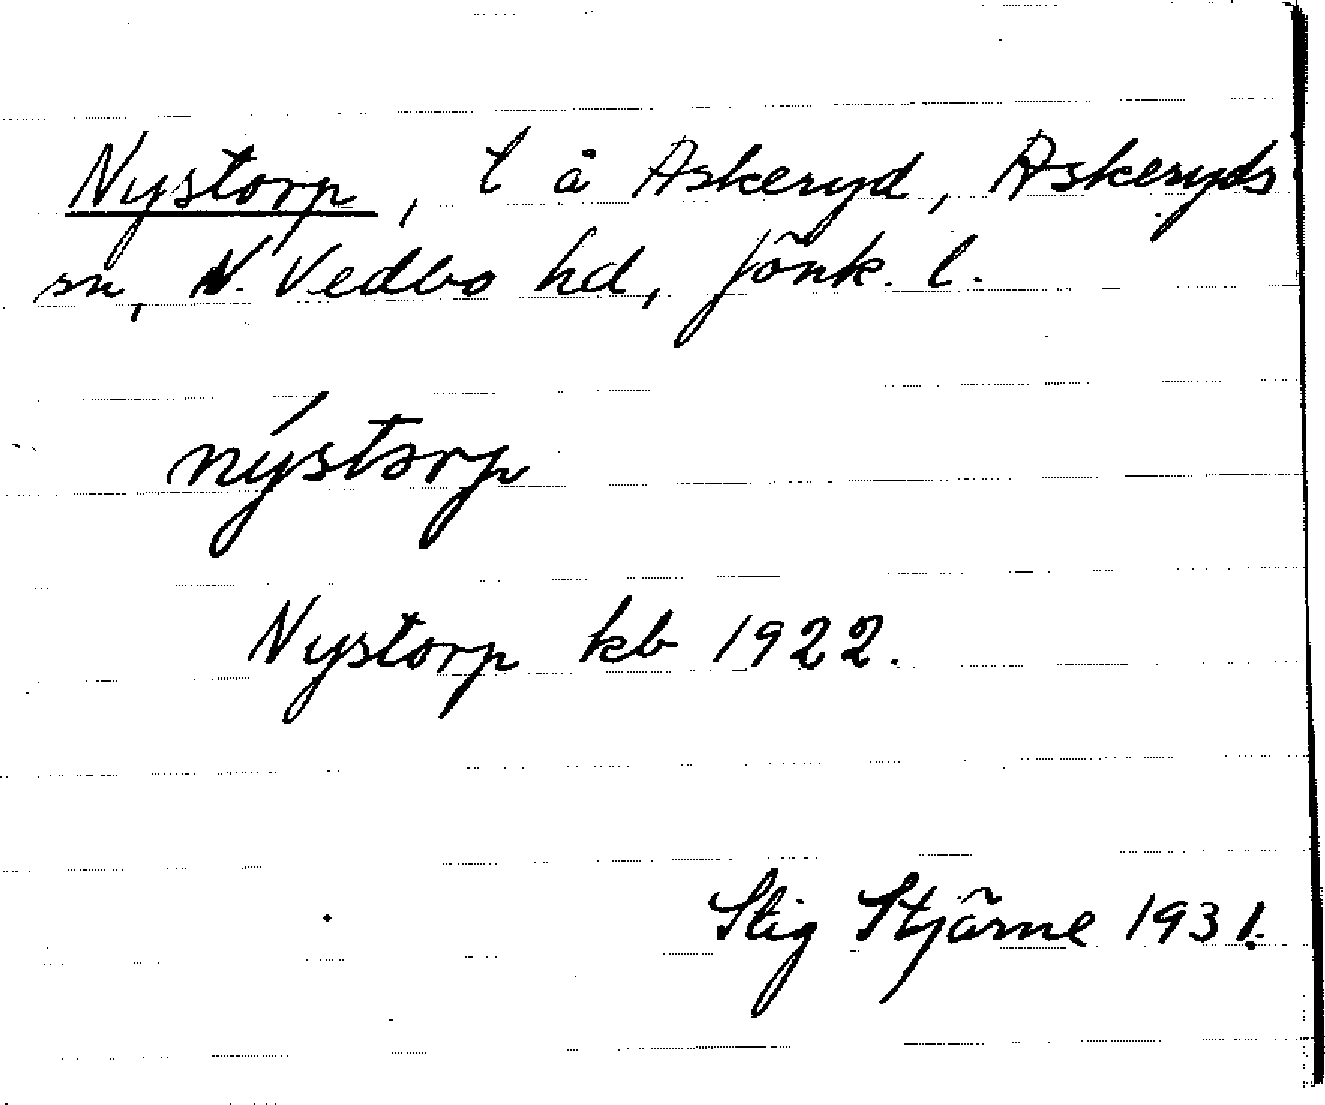 Nystorp, l å Askeryd, Askeryds
sn, N. Vedbo hd, Jönk. l.
nýstorp
Nystorp kb 1922.
Stig Stjärne 1931.